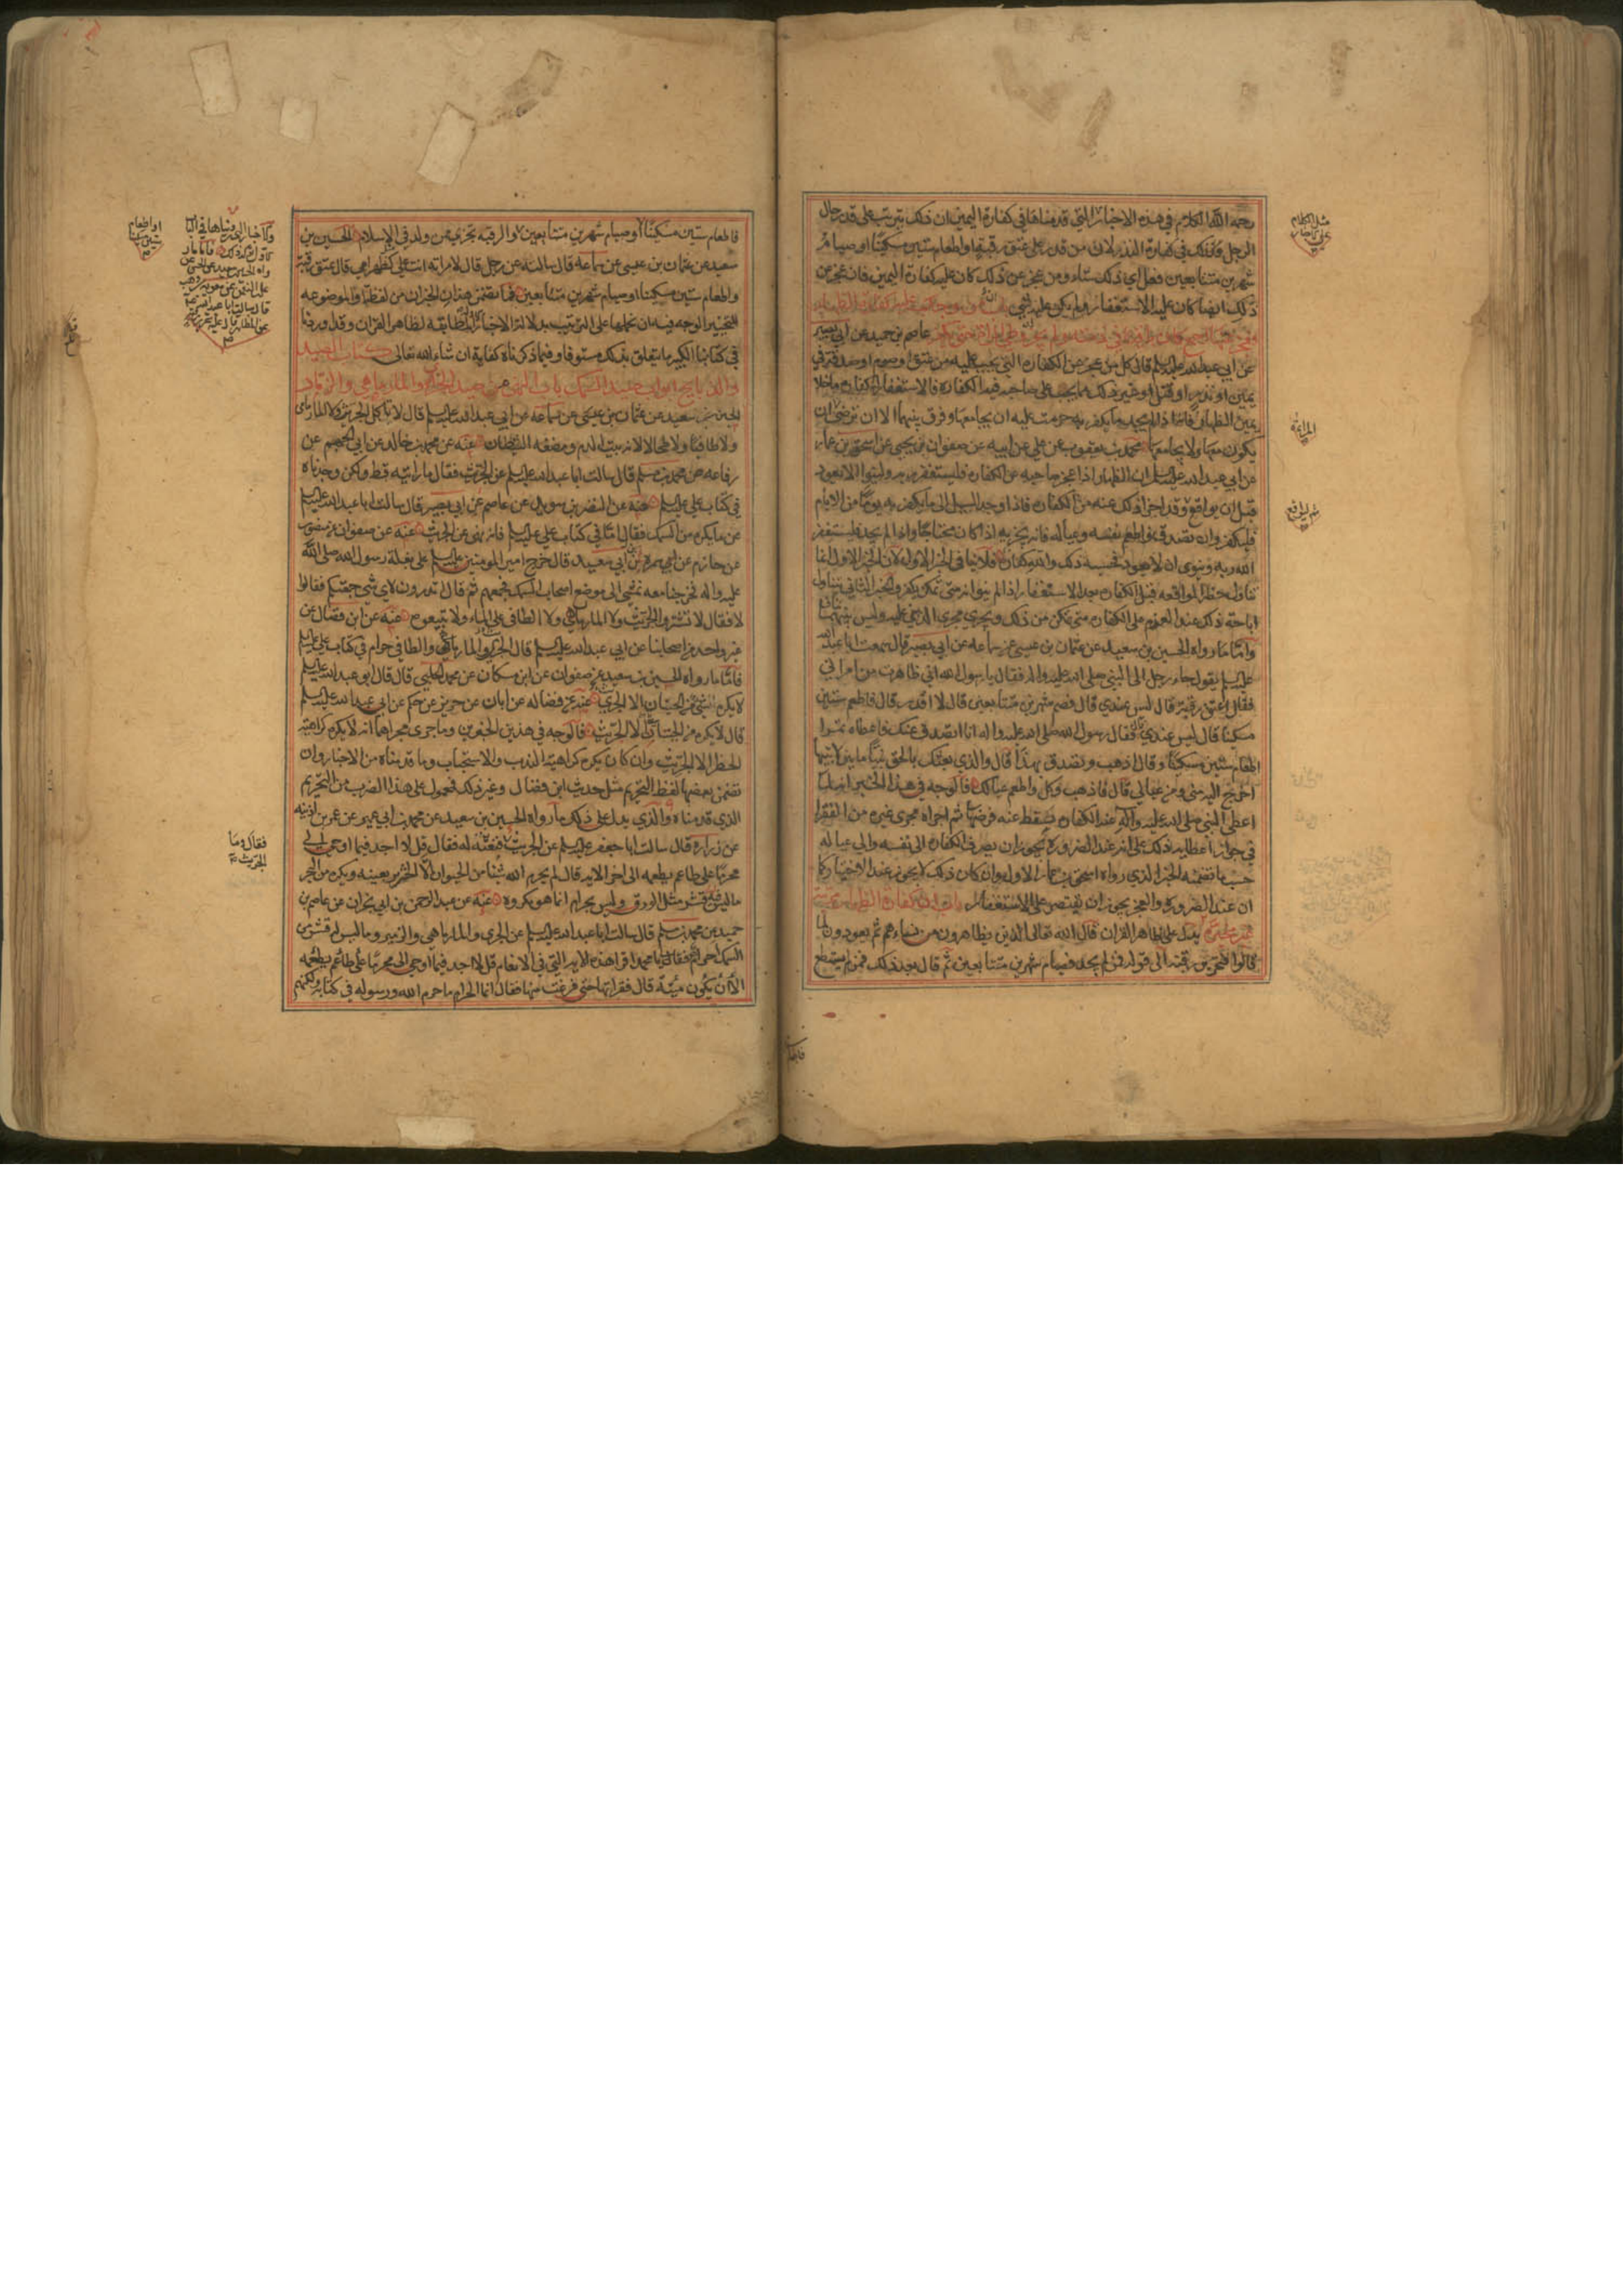 رحمه الله الكلام في هذه الاخبار التي قدمناها في كفارة اليمين ان ذلك يترتب على قدر حال
الرجل وكذلك في كفارة النذر لان من قدر على عتق رقبة واطعام ستين مسكينا او صيام
شهرين متتابعين فعل اي ذلك شاء ومن عجز عن ذلك كان عليه كفارة اليمين فان عجز عن
ذلك ايضا كان عليه الاستغفار ولم يكن عليه شي
عاصم بن حميد عن ابي بصير
عن ابي عبد الله عليه السلم قال كل من عجز عن الكفارة التي تجب عليه من عتق او صوم او صدقة في
يمين او نذر او قتل او غير ذلك مما يجب على صاحبه فيه الكفارة فالاستغفار له كفارة ما خلا
يمين الظهار فانه اذا لم يجد ما يكفر به حرمت عليه ان يجامعها وفرق بينهما الا ان ترضى ان
يكون معها ولا يجامعها محمد بن يعقوب عن علي عن ابيه عن صفوان بن يحيى عن اسحق بن عمار
عن ابي عبد الله عليه السلم ان الظهار اذا عجز صاحبه عن الكفارة فليستغفر ربه ولينو الا يعود
قبل ان يواقع وقد اجزا ذلك عنه من الكفارة فاذا وجد السبيل الى ما يكفر به يوما من الايام
فليكفر وان تصدق واطعم نفسه وعياله فانه يجزيه اذا كان محتاجا واذا لم يجد فليستغفر
الله ربه وينوي ان لا يعود فحسبه ذلك والله كفارة فلا ينافي الخبر الاول لان الخبر الاول انما
تناول حظر المواقعة قبل الكفارة بعد الاستغفار اذا لم ينو انه متى تمكن يكفر والخبر الثاني يتناول
اباحة ذلك عند العزم على الكفارة متى تمكن من ذلك ويجري مجرى الدين عليه وليس بينهما تناف
واما ما رواه الحسين بن سعيد عن عثمان بن عيسى عن سماعه عن ابي بصير قال سمعت ابا عبد الله
عليه السلم يقول جاء رجل الى النبي صلى الله عليه واله فقال يا رسول الله اني ظاهرت من امراتي
فقال اعتق رقبة قال ليس عندي قال فصم شهرين متتابعين قال لا اقدر قال فاطعم ستين
مسكينا قال ليس عندي قال فقال رسول الله صلى الله عليه واله انا اتصدق عنك فاعطاه تمرا
اطعام ستين مسكينا وقال اذهب وتصدق بهذا قال والذي بعثك بالحق نبيا ما بين لابتيها
احوج اليه مني ومن عيالي قال فاذهب وكل واطعم عيالك فالوجه في هذا الخبر انه لما
اعطى النبي صلى الله عليه وآله عنه الكفارة سقط عنه فرضها ثم اجراه مجرى غيره من الفقرا
في جواز اعطايه ذلك على انه عند الضرورة يجوز ان يصرف الكفارة الى نفسه والى عياله
حسب ما تضمنه الخبر الذي رواه اسحق بن عمار الاول وان كان ذلك لا يجوز عند الاختيار كما
ان عند الضرورة والعجز يجوز ان يقتصر على الاستغفار باب ان كفارة الظهار مرتبة
غير مخيرة يدل على ظاهر القران قال الله تعالى الذين يظاهرون من نساءهم ثم يعودون لما
قالوا فتحرير رقبة الى قوله فمن لم يجد فصيام شهرين متتابعين ثم قال بعد ذلك فمن لم يستطع
فاطعام ستين مسكينا او صيام شهرين متتابعين والرقبه تجزي ممن ولد في الاسلام الحسين بن
سعيد عن عثمان بن عيسى عن سماعه قال سالته عن رجل قال لامراته انت علي كظهر امي قال عتق رقبة
واطعام ستين مسكينا او صيام شهرين متتابعين فما تضمن هذان الخبران من لفظة او الموضوعه
للتخيير الوجه فيه ان نحملها على الترتيب بدلالة الاخبار المطابقة لظاهر القران وقد اوردنا
في كتابنا الكبير ما يتعلق بذلك مستوفا وفيما ذكرناه كفاية ان شاء الله تعالى كتاب الصيد
والذبايح ابواب صيد السمك باب النهي عن صيد الجري والمارماهي والزمار
الحسين بن سعيد عن عثمان بن عيسى عن سماعه عن ابي عبد الله عليه السلم قال لا تاكل الجريث ولا المارماهي
ولا طافيا ولا طحالا لانه بيت الدم ومضغة الشيطان عنه عن محمد بن خالد عن ابي الجهم عن
رفاعه عن محمد بن مسلم قال سالت ابا عبد الله عليه السلم عن الجريث فقال ما رايته قط ولكن وجدناه
في كتاب علي عليه السلم عنه عن النضر بن سويد عن عاصم عن ابي بصير قال سالت ابا عبد الله عليه السلم
عن ما يكره من السمك فقال اما في كتاب علي عليه السلم فانه نهى عن الجريث عنه عن صفوان عن منصور
بن حازم عن ابي سعيد قال خرج امير المومنين عليه السلم على بغلة رسول الله صلى الله
عليه واله فخرجنا معه نمشي الى موضع اصحاب السمك فجمعهم ثم قال تدرون لاي شي جمعتكم فقالوا
لا فقال لا تشتروا الجريث ولا المارماهي ولا الطافي على الماء ولا تبيعوه عنه عن ابن فضال عن
غير واحد من اصحابنا عن ابي عبد الله عليه السلم قال الجري والمارماهي والطافي حرام في كتاب علي عليه السلم
فاما ما رواه الحسين بن سعيد عن صفوان عن ابن مسكان عن محمد الحلبي قال قال ابو عبد الله عليه السلم
لا يكره شي من الحيتان الا الجري عنه عن فضاله عن ابان عن حريز عن حكم عن ابي عبد الله عليه السلم
قال لا يكره من الحيتان الا الجريث فالوجه في هذين الخبرين وما جرى مجراهما انه لا يكره كراهية
الحظر الا الجريث وان كان يكره كراهية الندب والاستحباب وما قدمناه من الاخبار وان
تضمن بعضها لفظ التحريم مثل حديث ابن فضال وغير ذلك فمحمول على هذا الضرب من التحريم
الذي قدمناه والذي يدل على ذلك ما رواه الحسين بن سعيد عن محمد بن ابي عمير عن عمر بن اذينه
عن زراره قال سالت ابا جعفر عليه السلم عن الجريث فنعته له فقال قل لا اجد فيما اوحي الي
محرما على طاعم يطعمه الى اخر الايه قال لم يحرم الله شيئا من الحيوان الا الخنزير بعينه ويكره من البحر
ما ليس فيه قشر مثل الورق وليس بحرام انما هو مكروه عنه عن عبد الرحمن بن ابي نجران عن عاصم بن
حميد عن محمد بن مسلم قال سالت ابا عبد الله عليه السلم عن الجري والمارماهي والزمير وما ليس له قشر من
السمك احرام هو فقال لي يا محمد اقرا هذه الاية التي في الانعام قل لا اجد فيما اوحي الي محرما على طاعم يطعمه
الا ان يكون ميتة قال فقراتها حتى فرغت منها فقال انما الحرام ما حرم الله ورسوله في كتابه ولكنهم
فقال وما
الجريث